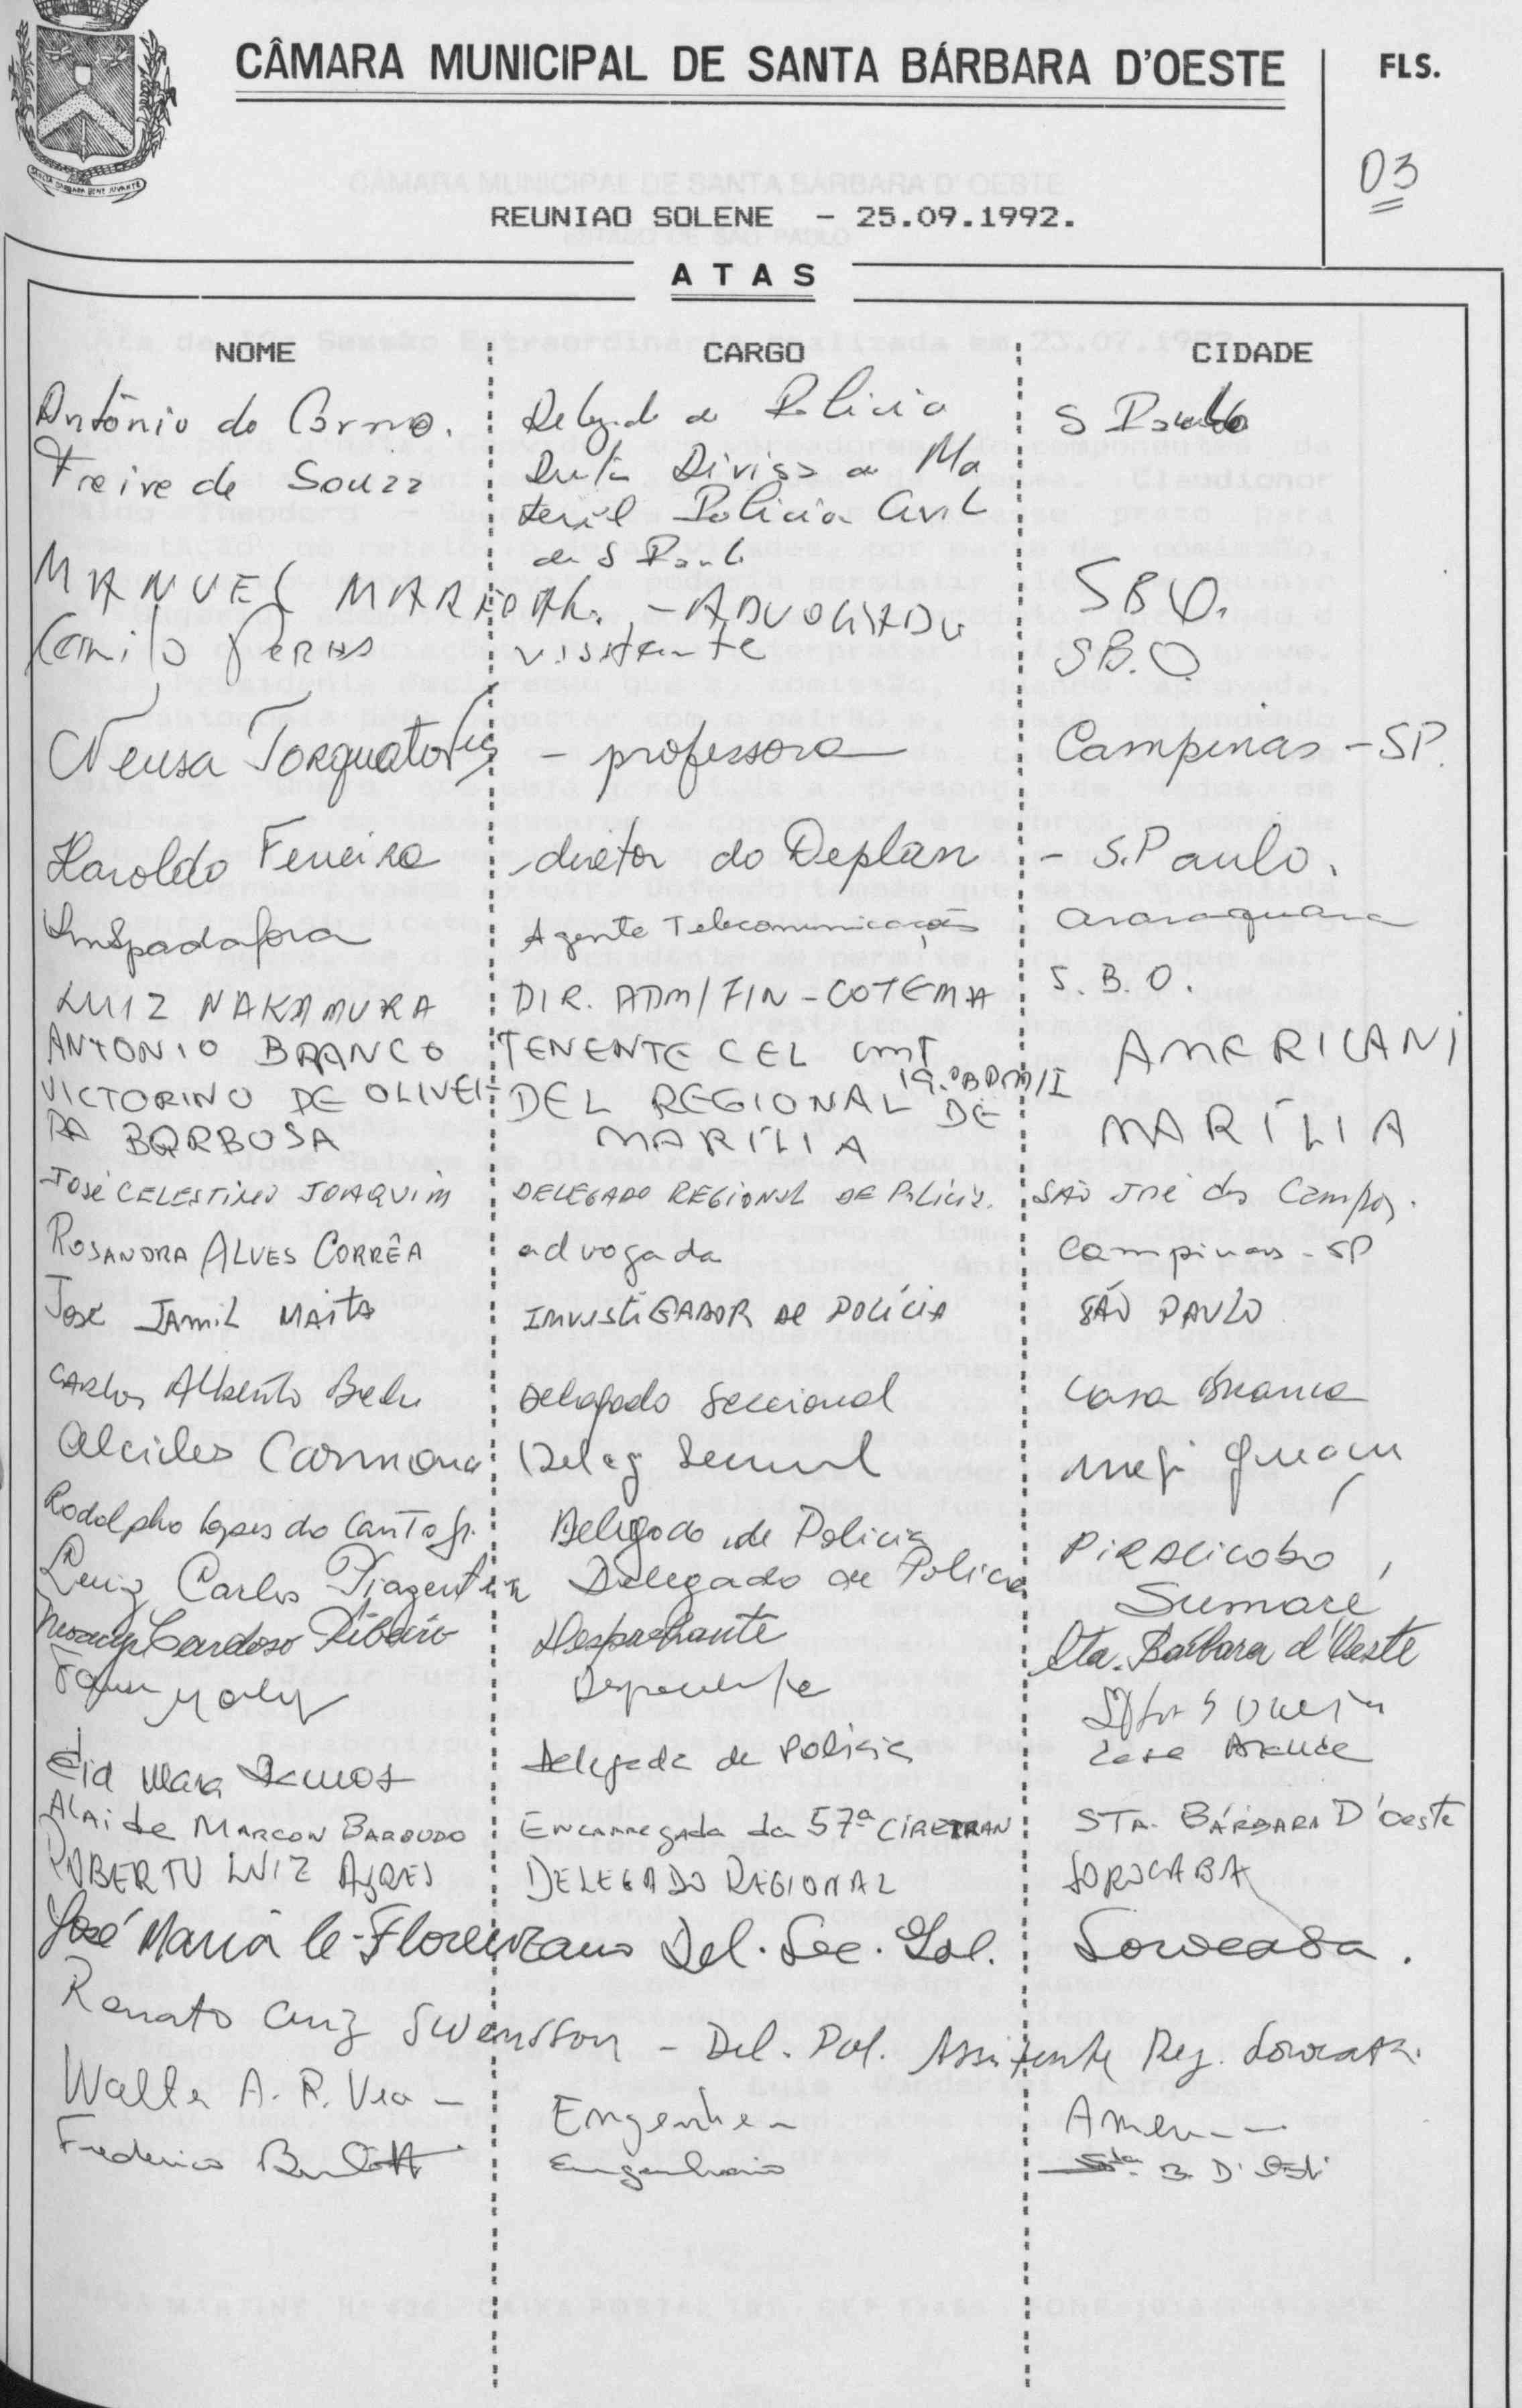 CÂMARA MUNICIPAL DE SANTA BÁRBARA D'OESTE
FLS.
03
REUNIAO SOLENE - 25.09.1992.
ATAS
NOME CARGO CIDADE
Antônio do Carmo. Delegado de Policia S Paulo
Freire de Souza Divisão de Ma
terial Policia Civil
de S Paulo
MANUEL - ADVOGADO SBO.
Camilo visitante S.B.O
Neusa Torquato - professora Campinas - SP.
Haroldo Ferreira - diretor do Deplan - S. Paulo.
Spadafora Agente Telecomunicações Araraquara
LUIZ NAKAMURA DIR. ADM/FIN - COTEMA S. B. O.
ANTONIO BRANCO TENENTE CEL CMT 19.º BPM/I AMERICANA
VICTORINO DE OLIVEI- DEL REGIONAL DE
RA BARBOSA MARÍLIA MARÍLIA
José CELESTINO JOAQUIM DELEGADO REGIONAL DE Polícia. SÃO José dos Campos.
ROSANDRA ALVES CORRÊA advogada Campinas - SP
José JAMIL INVESTIGADOR DE POLÍCIA SÃO PAULO
CARLOS Alberto Delegado Seccional Casa Branca
Alcides Carmona Deleg Mogi Guaçu
Rodolpho Lopes do Canto Jr. Delegado de Policia PIRACICABA
Luiz Carlos Delegado de Policia Sumaré
Cardoso Ribeiro Despachante Sta. Bárbara d'Oeste
Despachante
Mara Delegada de Polícia Casa Branca
Alaide MARCON BARBUDO Encarregada da 57ª CIRETRAN STA. BÁRBARA D'Oeste
ROBERTO LUIZ DELEGADO REGIONAL SOROCABA
José Maria Florenzano Del. Sec. Pol. Sorocaba.
Renato Cruz Swensson - Del. Pol. Assistente Reg. Sorocaba.
Walter A. R. Engenheiro
Frederico Engenheiro Sta. B. D'Oeste